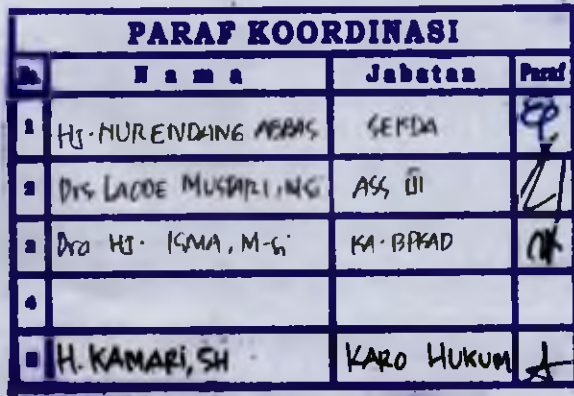 PARAF KOORDINASI
No. Nama Jabatan Paraf
1 HJ. NURENDANG ABBAS SEKDA
2 Drs LAODE MUSTARI, MSi ASS III
3 Dra HJ. ISMA, M-Si KA. BPKAD
4
5 H. KAMARI, SH KARO HUKUM